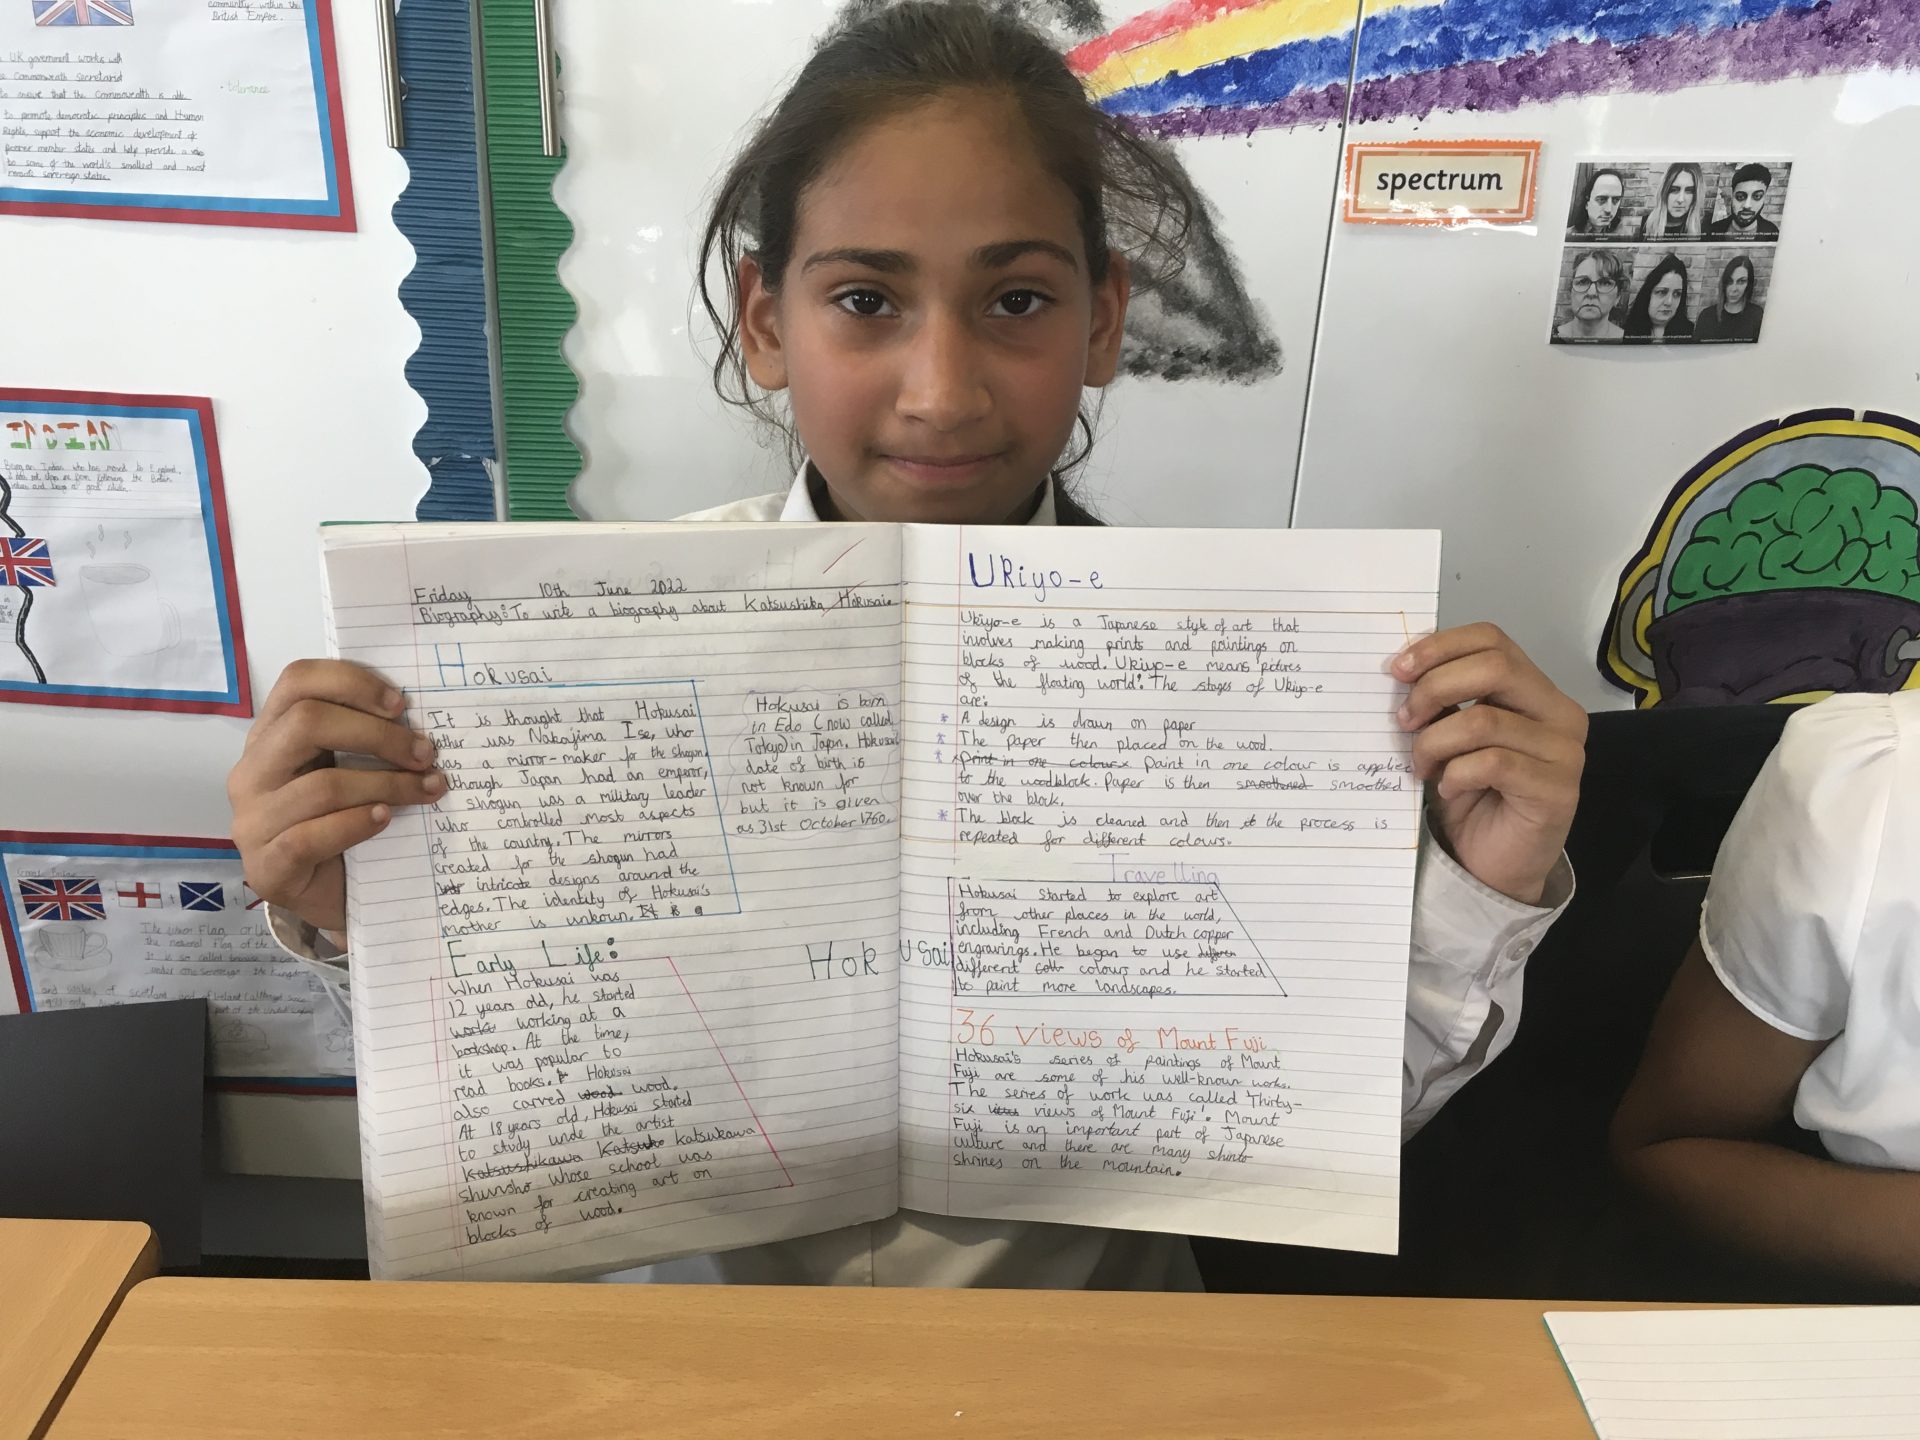 community within the
British Empire.
UK government works with
Commonwealth Secretariat
to ensure that the Commonwealth is able
to promote democratic principles and Human
Rights, support the economic development of
poorer member states and help provide a
to some of the world's smallest and most
remote sovereign states.
tolerance
Being an Indian who has moved to England,
spectrum
Friday 10th June 2022
Biography: To write a biography about Katsushika Hokusai.
Hokusai
It is thought that Hokusai
father was Nakajima Ise, who
was a mirror-maker for the shogun.
Although Japan had an emperor,
a shogun was a military leader
who controlled most aspects
of the country. The mirrors
created for the shogun had
intricate designs around the
edges. The identity of Hokusai's
mother is unkoun. It is a
Hokusai is born
in Edo (now called
Tokyo) in Japan. Hokusai
date of birth is
not known for
but it is given
as 31st October 1760.
Early Life:
When Hokusai was
12 years old, he started
works working at a
bookshop. At the time,
it was popular to
read books. Hokusai
also carved wood wood.
At 18 years old, Hokusai started
to study unde the artist
Katsushikawa Katsuko Katsukawa
shunshō whose school was
known for creating art on
blocks of wood.
Hokusai
Ukiyo-e
Ukiyo-e is a Japanese style of art that
involves making prints and paintings on
blocks of wood. Ukiyo-e means pictures
of the floating world'. The stages of Ukiyo-e
are:
* A design is drawn on paper
* The paper then placed on the wood.
* Print in one colour Paint in one colour is applied
to the woodblock. Paper is then smoothered smoothed
over the block.
* The block is cleaned and then it the process is
repeated for different colours.
Travelling
Hokusai started to explore art
from other places in the world,
including French and Dutch copper
engravings. He began to use differen
different colours and he started
to paint more landscapes.
36 Views of Mount Fuji
Hokusai's series of paintings of Mount
Fuji are some of his well-known works.
The series of work was called 'Thirty-
six views of Mount Fuji'. Mount
Fuji is an important part of Japanese
culture and there are many shinto
shrines on the mountain.